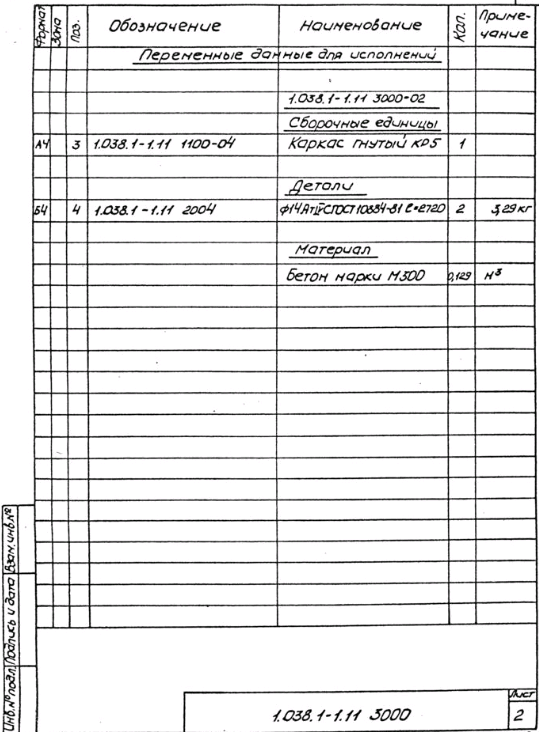 Формат Зона Поз. Обозначение Наименование Кол. Приме-
чание
Переменные данные для исполнений
1.038.1-1.11 3000-02
Сборочные единицы
А4 3 1.038.1-1.11 1100-04 Каркас гнутый КР5 1
Детали
Б4 4 1.038.1-1.11 2004 ф14АтIVС ГОСТ 10884-81 ℓ=2720 2 3,29 кг
Материал
Бетон марки М300 0,129 м³
Инв.№ подл. Подпись и дата Взам.инв.№
1.038.1-1.11 3000
Лист
2